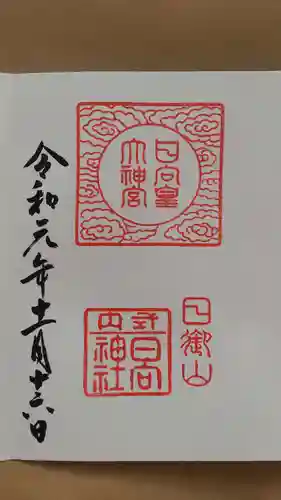 日向皇
大神宮
日御山
式内
日向
神社
令和元年十二月十六日